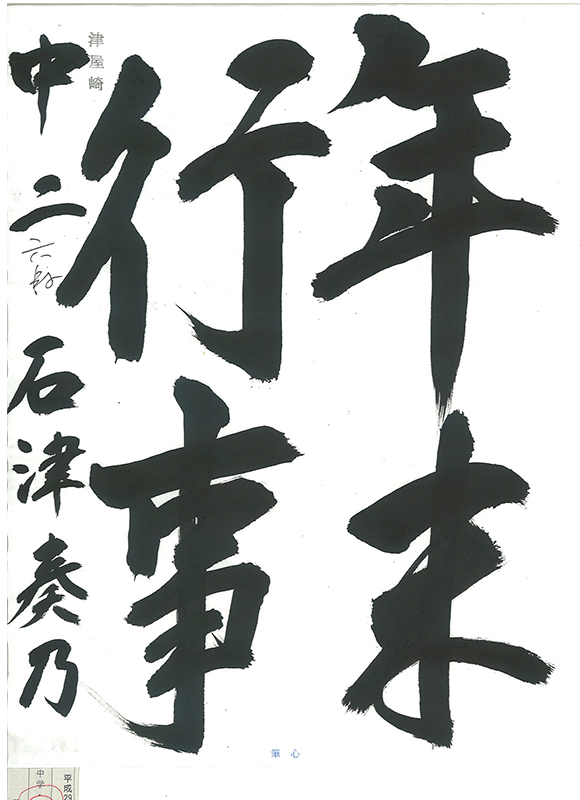 年末
行事
津屋崎
中二 石津奏乃
心筆
平成29
中学